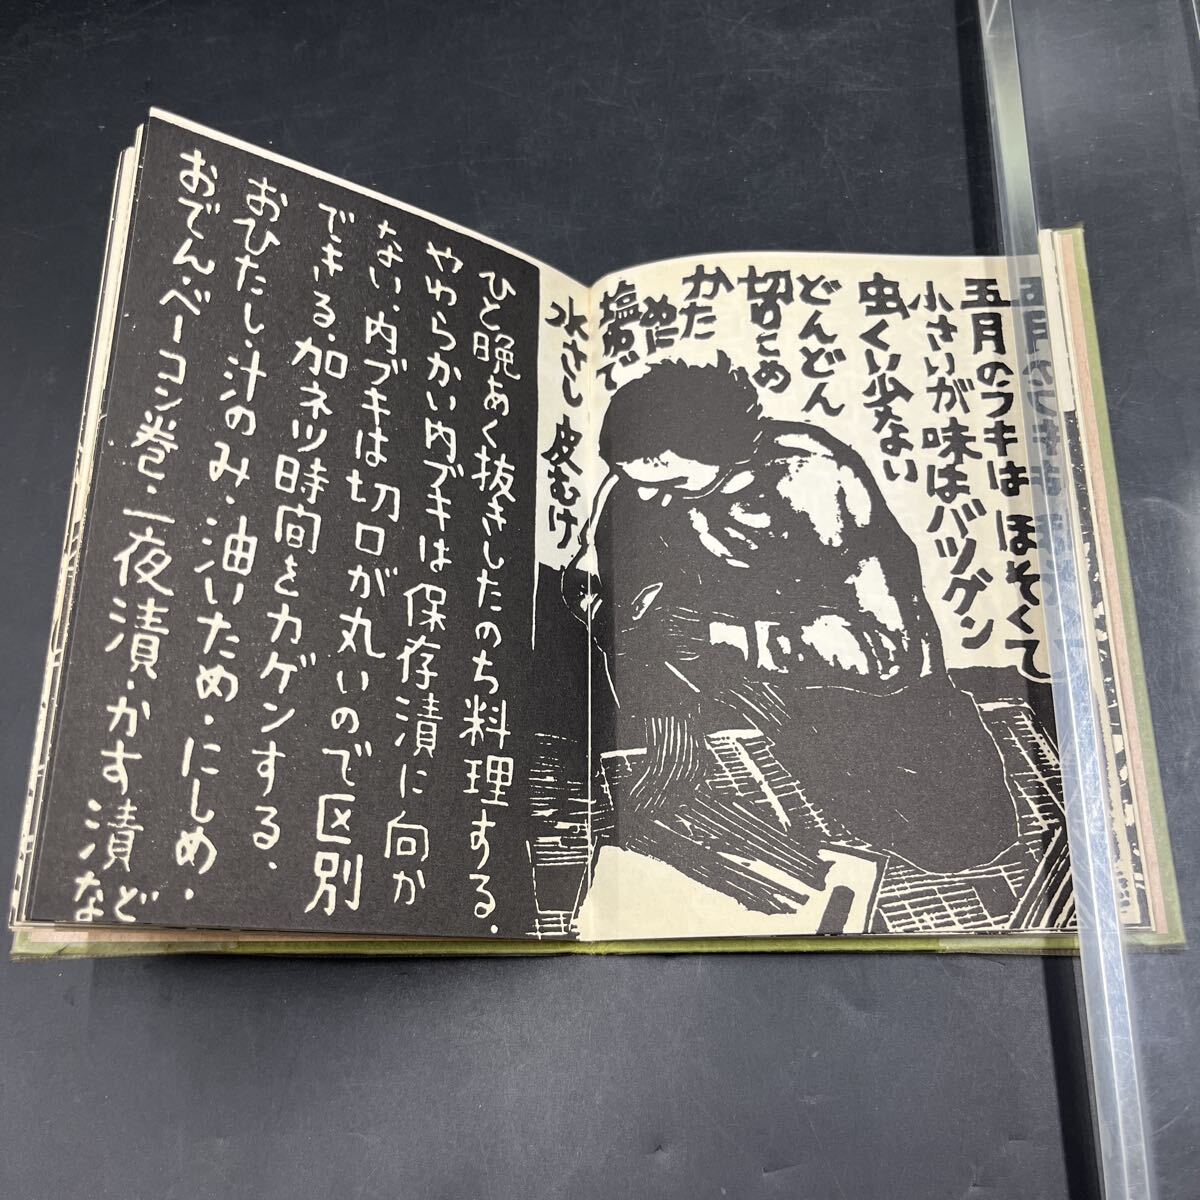 五月のフキは ほそくて
小さいが味はバツグン
虫くい少ない
どんどん
切りこめ
かた
めに
塩ゆで
水さし 皮むけ
ひと晩あく抜きしたのち料理する。
やわらかい内ブキは保存漬に向か
ない。内ブキは切口が丸いので区別
できる。加ネツ時間をカゲンする。
おひたし・汁のみ・油いため・にしめ・
おでん・ベーコン巻・一夜漬・かす漬など